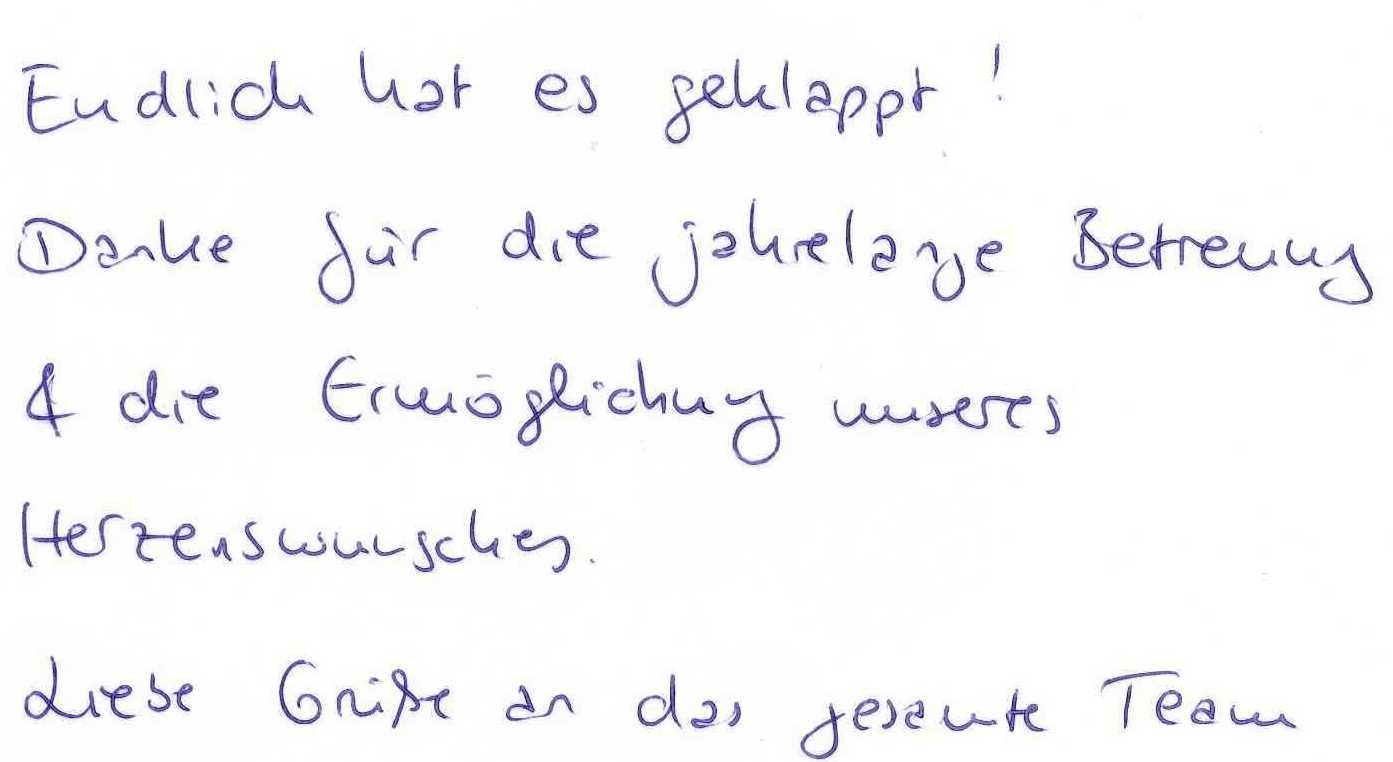 Endlich hat es geklappt!
Danke für die jahrelange Betreuung
& die Ermöglichung unseres
Herzenswunsches.
Liebe Grüße an das gesamte Team